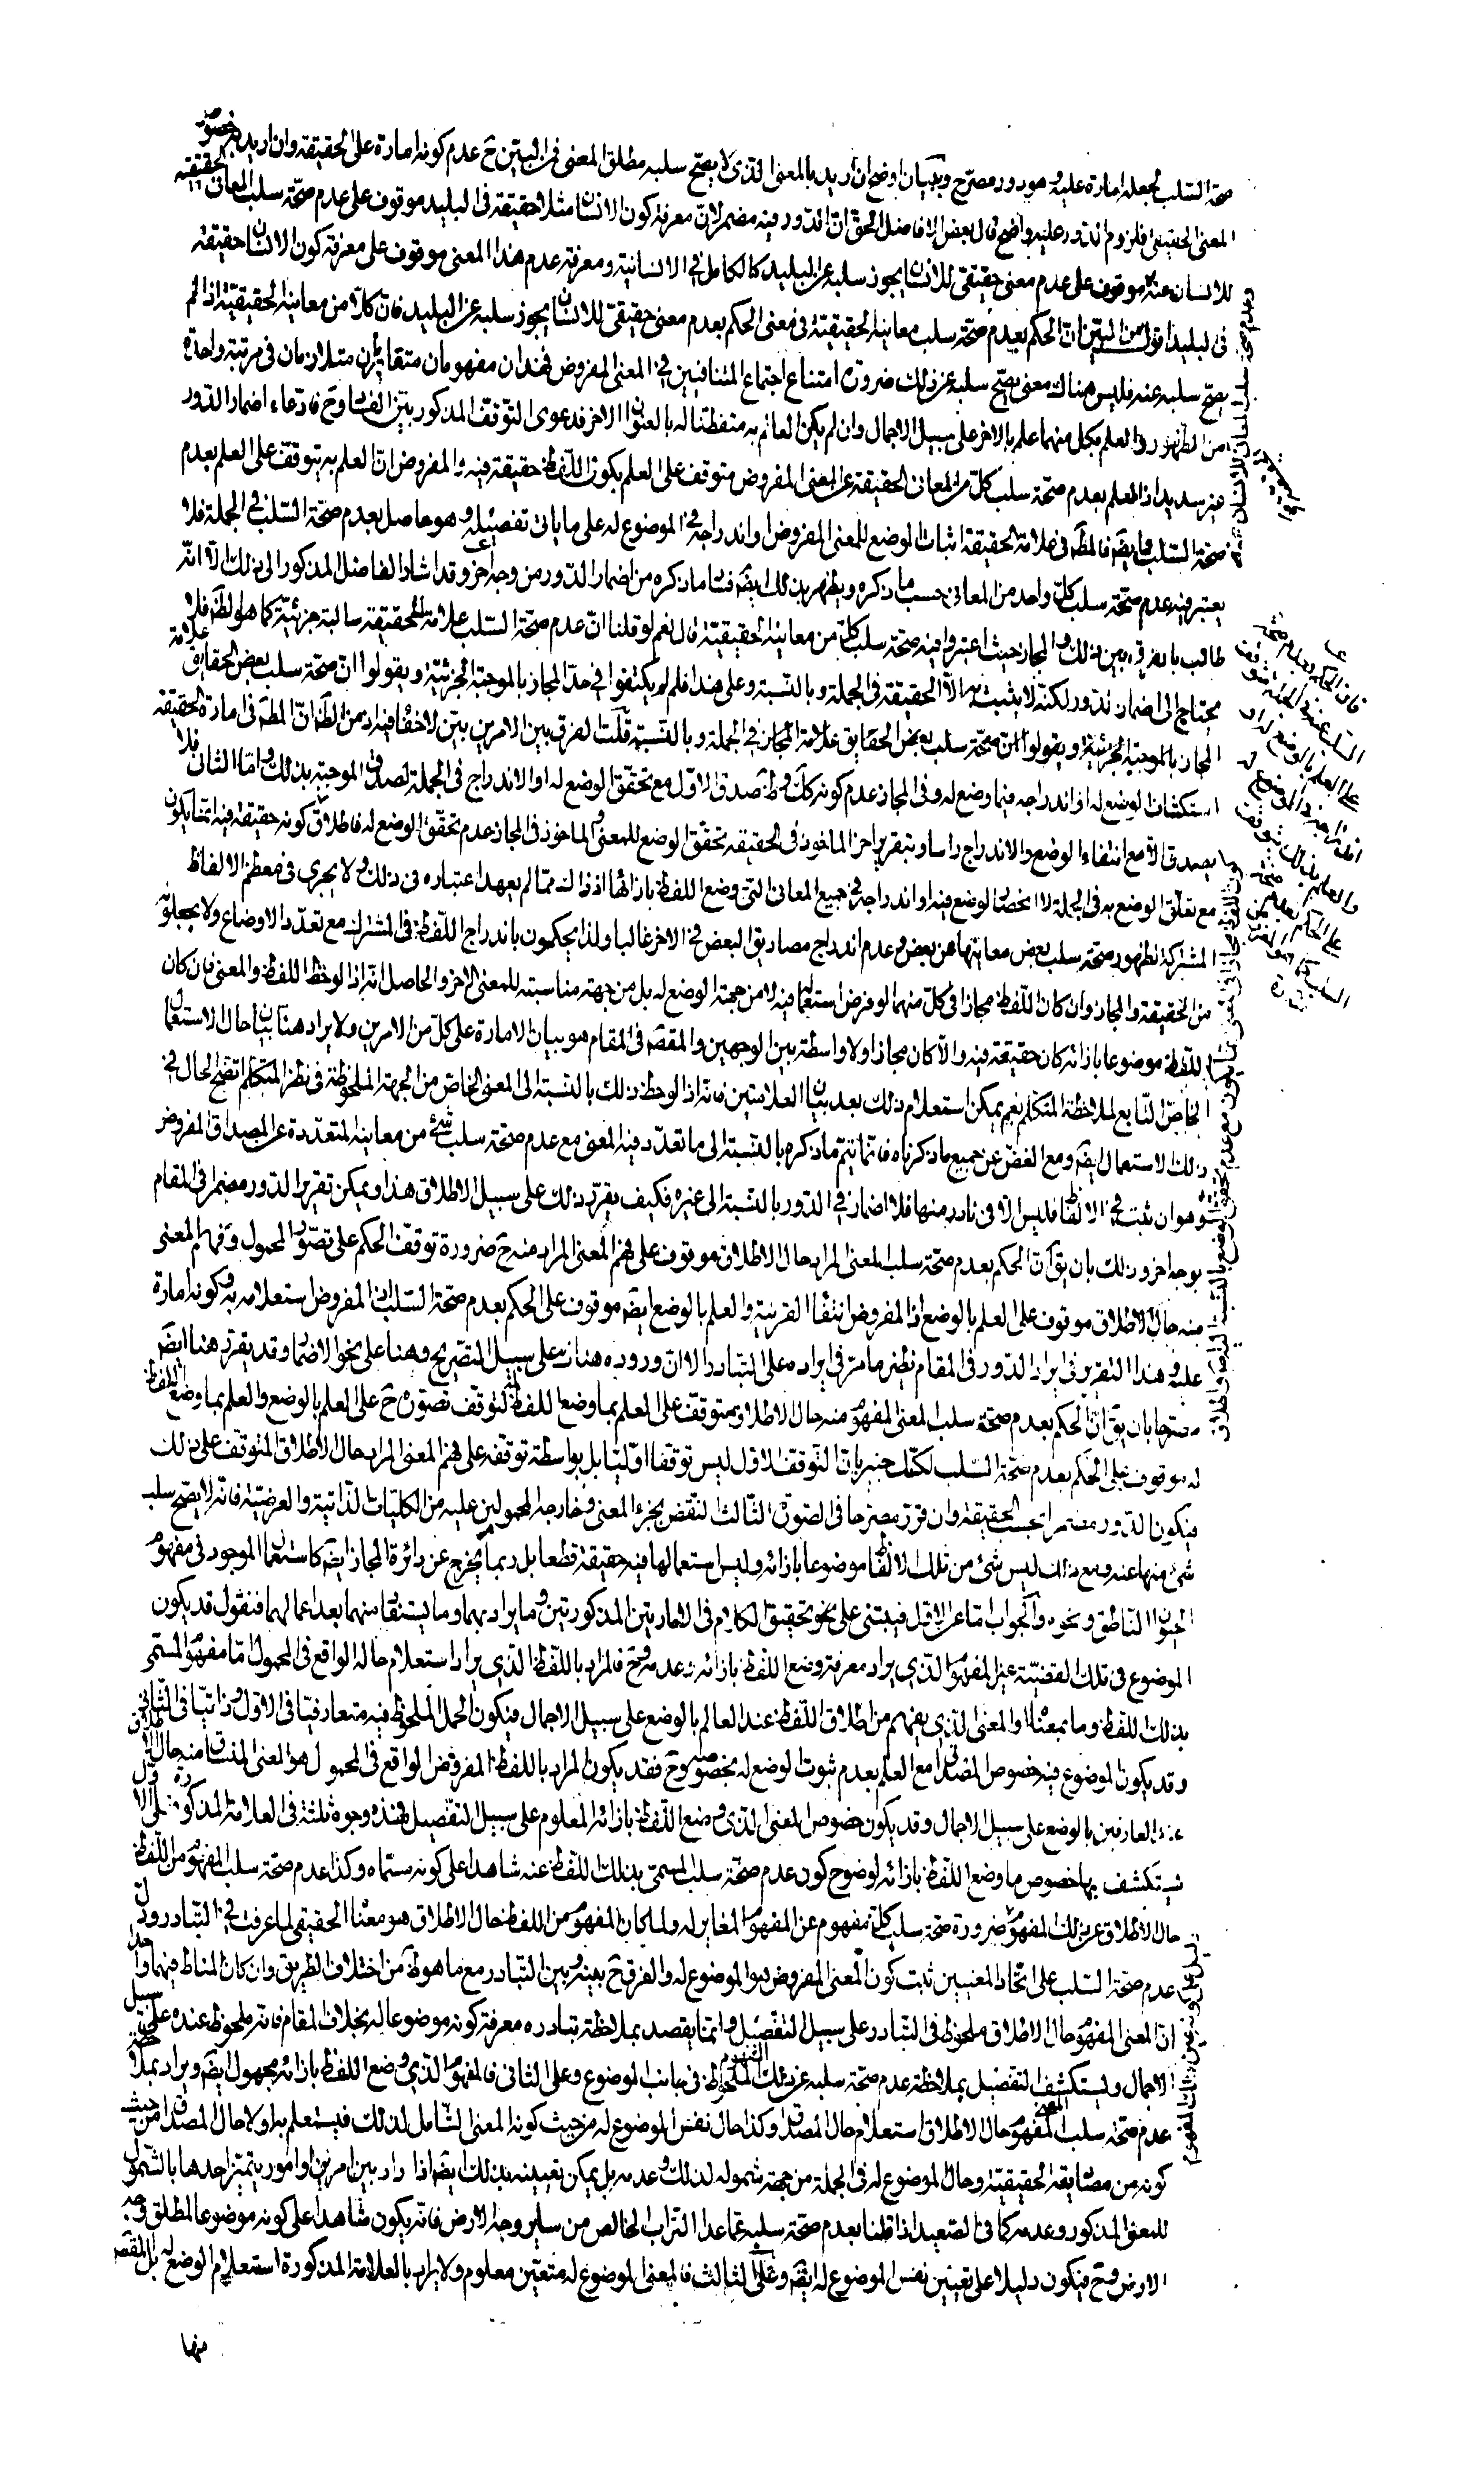 صحة السّلب لجعله امارة عليه وهو دور مصرّح وببيان اوضح ان اريد بالمعنى الذى لا يصحّ سلبه مطلق المعنى فمن البيّن ح عدم كونه امارة على الحقيقة وان اريد به خصوص
المعنى الحقيقى فلزوم الدّور عليه واضح قال بعض الافاضل الحق انّ الدّور فيه مضمر لانّ معرفة كون الانسان مثلا حقيقة فى البليد موقوف على عدم صحّة سلب المعانى الحقيقيّة
للانسان عنه وموقوف على عدم معنى حقيقىّ للانسان يجوز سلبه عن البليد كالكامل فى الانسانية ومعرفة عدم هذا المعنى موقوف على معرفة كون الانسان حقيقة
فى البليد اقول من البيّن انّ الحكم بعدم صحّة سلب معانيه الحقيقيّة فى معنى الحكم بعدم معنى حقيقىّ للانسان يجوز سلبه عن البليد فانّ كلّا من معانيه الحقيقيّة اذا لم
يصحّ سلبه عنه فليس هناك معنى يصحّ سلبه عن ذلك ضرورة امتناع اجتماع المتنافيين فى المعنى المفروض فهذان مفهومان متقاربان متلازمان فى مرتبة واحدة
من الظهور والعلم بكل منهما علم بالاخر على سبيل الاجمال وان لم يكن العالم به متفطّنا له بالعنوان الاخر فدعوى التّوقّف المذكور بيّن الفساد وح فادّعاء اضمار الدّور
غير سديد اذ العلم بعدم صحّة سلب كلّ من المعانى الحقيقة عن المعنى المفروض متوقف على العلم بكون اللّفظ حقيقة فيه والمفروض انّ العلم به يتوقّف على العلم بعدم
صحّة السّلب وايضا فالمط فى علامة الحقيقة اثبات الوضع للمعنى المفروض او اندراجه فى الموضوع له على ما ياتى تفصيله وهو حاصل بعدم صحّة السّلب فى الجملة فلا
يعتبر فيه عدم صحّة سلب كلّ واحد من المعانى حسب ما ذكره ويظهر بذلك ايضا فساد ما ذكره من اضمار الدّور من وجه اخر وقد اشار الفاضل المذكور الى ذلك الّا انّه
طالب بالفرق بين ذلك والمجاز حيث اعتبروا فيه صحّة سلب كلّ من معانيه الحقيقيّة قال نعم لو قلنا انّ عدم صحّة السّلب علامة للحقيقة سالبة جزئيّة كما هو الظ فلا
يحتاج الى اضمار الدّور لكنّه لا يثبت به الّا الحقيقة فى الجملة وبالنّسبة وعلى هذا فلم لم يكتفوا فى حدّ المجاز بالموجبة الجزئيّة ويقولوا انّ صحّة سلب بعض الحقايق علامة
المجاز فى الجملة وبالنّسبة قلت الفرق بين الامرين بيّن لاخفاء فيه اذ من الظ انّ المط فى امارة الحقيقة
استكشاف الوضع له او اندراجه فيما وضع له وفى المجاز عدم كونه كك وظ صدق الاوّل مع تحقّق الوضع له او الاندراج فى الجملة لصدق الموجبة بذلك وامّا الثانى فلا
يصدق الّا مع انتفاء الوضع والاندراج راسا وبتقرير اخر الماخوذ فى الحقيقة تحقّق الوضع للمعنى والماخوذ فى المجاز عدم تحقّق الوضع له فاطلاق كونه حقيقة فيه انّما يكون
مع تعلّق الوضع به فى الجملة لا انحصار الوضع فيه او اندراجه فى جميع المعانى الّتى وضع اللفظ بازائها اذ ذاك ممّا لم يعهد اعتباره فى ذلك ولا يجرى فى معظم الالفاظ
المشتركة لظهور صحّة سلب بعض معانيها عن بعض وعدم اندراج مصاديق البعض فى الاخر غالبا ولذا يحكمون باندراج اللّفظ فى المشترك مع تعدّد الاوضاع ولا يجعلونه
من الحقيقة والمجاز وان كان اللّفظ مجازا فى كلّ منهما لو فرض استعماله فيه لا من جهة الوضع له بل من جهة مناسبته للمعنى الاخر والحاصل انّه اذا لوحظ اللفظ والمعنى فان كان
اللفظ موضوعا بازائه كان حقيقة فيه والّا كان مجازا ولا واسطة بين الوجهين والمقصّ فى المقام هو بيان الامارة على كلّ من الامرين ولا يراد هنا بيان حال الاستعمال
الخاصّ التّابع لملاحظة المتكلم نعم يمكن استعلام ذلك بعد بيان العلامتين فانّه اذا لوحظ ذلك بالنّسبة الى المعنى الخاصّ من الجهة الملحوظة فى نظر المتكلم اتّضح الحال فى
ذلك الاستعمال ايضا ومع الغضّ عن جميع ما ذكرناه فانّما يتم ما ذكره بالنّسبة الى ما تعدّد فيه المعنى مع عدم صحّة سلب شئ من معانيه المتعدّدة عن المصداق المفروض
وهو ان ثبت فى الالفاظ فليس الّا فى نادر منها فلا اضمار فى الدّور بالنّسبة الى غيره فكيف يقرّر ذلك على سبيل الاطلاق هذا ويمكن تقرير الدّور مضمرا فى المقام
بوجه اخر وذلك بان يق انّ الحكم بعدم صحّة سلب المعنى المراد حال الاطلاق موقوف على فهم المعنى المراد منه ح ضرورة توقّف الحكم على تصوّر المحمول وفهم المعنى
منه حال الاطلاق موقوف على العلم بالوضع اذ المفروض انتفاء القرينة والعلم بالوضع ايضا موقوف على الحكم بعدم صحّة السّلب اذ المفروض استعلامه به وكونه امارة
عليه وهذا التقرير فى ايراد الدّور فى المقام نظير ما مرّ فى ايراده على التبادر الا انّ وروده هناك على سبيل التصريح وهنا على نحو الاضمار وقد يقرّر هنا ايضا
مصرّحا بان يق انّ الحكم بعدم صحّة سلب المعنى المفهوم منه حال الاطلاق متوقّف على العلم بما وضع اللفظ له لتوقّف تصوّره ح على العلم بالوضع والعلم بما وضع اللفظ
له موقوف على الحكم بعدم صحّة السّلب لكنّك خبير بانّ التّوقّف الاوّل ليس توقّفا اوّليّا بل بواسطة توقّفه على فهم المعنى المراد حال الاطلاق المتوقّف على ذلك
فيكون الدّور مضمرا بحسب الحقيقة وان قرّر مصرّحا فى الصّورة الثّالث النّقض بجزء المعنى وخارجه المحمولين عليه من الكلّيات الذّاتية والعرضيّة فانّه لا يصحّ سلب
شئ منها عنه ومع ذلك ليس شئ من تلك الالفاظ موضوعا بازائه وليس استعمالها فيه حقيقة قطعا بل ربما يخرج عن دائرة المجاز ايضا كاستعمال الموجود فى مفهوم
الحيوان النّاطق ونحوه والجواب امّا عن الاوّل فيبتنى على نحو تحقيق الكلام فى الامارتين المذكورتين وما يراد بهما وما يستفاد منهما بعد اعمالهما فنقول قد يكون
الموضوع فى تلك القضيّة عين المفهوم الّذى يراد معرفة وضع اللّفظ بازائه وعدمه وح فالمراد باللّفظ الّذى يراد استعلام حاله الواقع فى المحمول امّا مفهوم المسمّى
بذلك اللفظ وما بمعناه او المعنى الّذى يفهم من اطلاق اللّفظ عند العالم بالوضع على سبيل الاجمال فيكون الحمل الملحوظ فيه متعارفيّا فى الاوّل وذاتيّا فى الثّانى
وقد يكون الموضوع فيه خصوص المصداق مع العلم بعدم ثبوت الوضع له بخصوصه وح فقد يكون المراد باللفظ المفروض الواقع فى المحمول هو المعنى المنساق منه حال الاطلاق
عند العارفين بالوضع على سبيل الاجمال وقد يكون خصوص المعنى الّذى وضع اللّفظ بازائه المعلوم على سبيل التّفصيل فهذه وجوه ثلثة فى العلامة المذكورة فعلى الاوّل
يستكشف بها خصوص ما وضع اللّفظ بازائه لوضوح كون عدم صحّة سلب المسمّى بذلك اللّفظ عنه شاهدا على كونه مسمّاه وكذا عدم صحّة سلب المفهوم من اللّفظ
حال الاطلاق عن ذلك المفهوم ضرورة صحّة سلب كلّ مفهوم عن المفهوم المغاير له ولما كان المفهوم من اللفظ حال الاطلاق هو معناه الحقيقى لما عرفت فى التّبادر ودلّ
عدم صحّة السّلب على اتّحاد المعنيين ثبت كون المعنى المفروض هو الموضوع له والفرق ح بينه وبين التّبادر مع ما هو ظ من اختلاف الطريق وان كان المناط فيهما واحدا
انّ المعنى المفهوم حال الاطلاق ملحوظ فى التّبادر على سبيل التّفصيل وانّما يقصد بملاحظة تبادره معرفة كونه موضوعا له بخلاف المقام فانّه ملحوظ عنده على سبيل
الاجمال ويستكشف التّفصيل بملاحظة عدم صحّة سلبه عن ذلك المفهوم الملحوظ فى جانب الموضوع وعلى الثانى فالمفهوم الّذى وضع اللفظ بازائه مجهول ايضا ويراد بملاحظة
عدم صحّة سلب المعنى المفهوم حال الاطلاق استعلام حال المصداق وكذا حال نفس الموضوع له من حيث كونه المعنى الشّامل لذلك فيستعلم به اولا حال المصداق من حيث
كونه من مصاديقه الحقيقيّة وحال الموضوع له فى الجملة من جهة شموله لذلك وعدمه بل يمكن تعيينه بذلك ايضا اذا دار بين امرين او امور يتميّز احدها بالشّمول
للمعنى المذكور وعدمه كما فى الصّعيد اذا قلنا بعدم صحّة سلبه عمّا عدا التّراب الخالص من ساير وجه الارض فانّه يكون شاهدا على كونه موضوعا لمطلق وجه
الارض وح فيكون دليلا على تعيين نفس الموضوع له ايضا وعلى الثّالث فالمعنى الموضوع له متعيّن معلوم ولا يراد بالعلامة المذكورة استعلام الوضع له بل المقصّ
منها